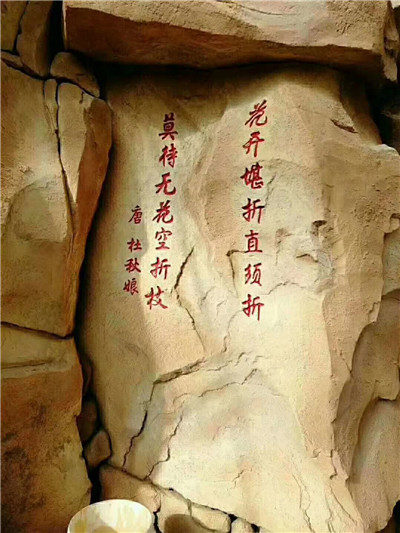 花开堪折直须折
莫待无花空折枝
唐 杜秋娘